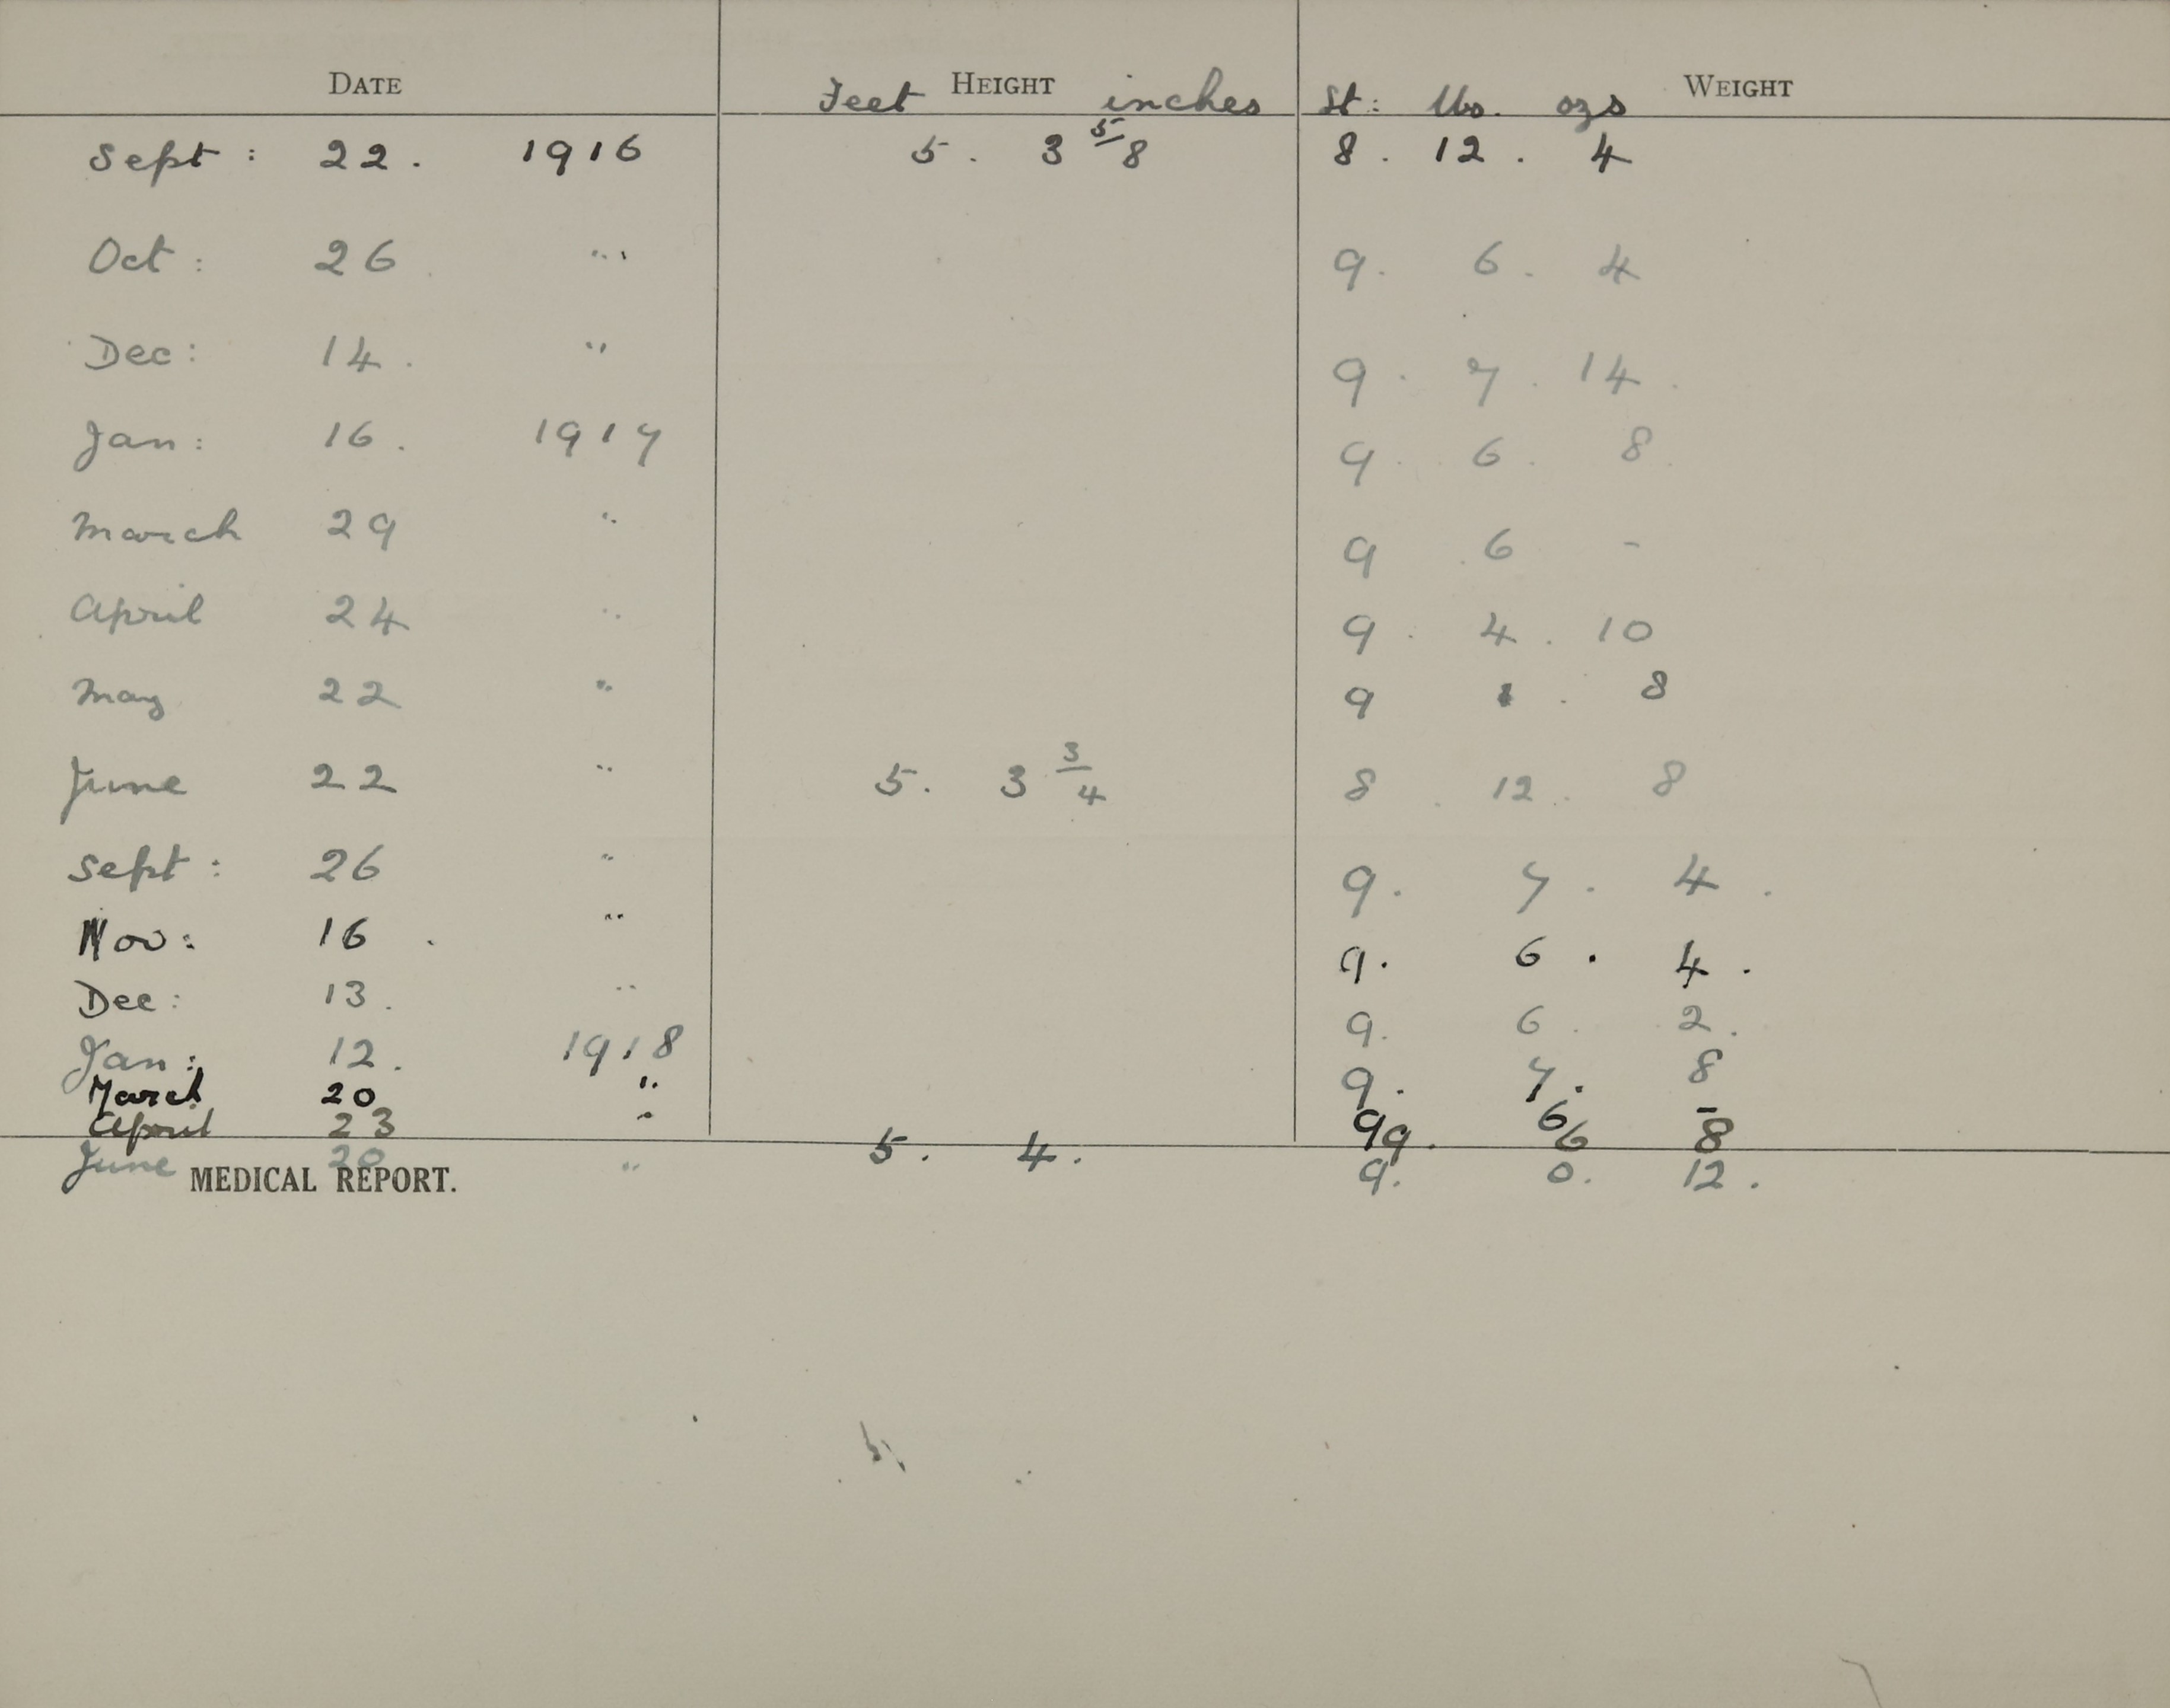 DATE HEIGHT WEIGHT
Feet inches St: lbs. ozs
Sept: 22. 1916 5. 3 5/8 8. 12. 4
Oct: 26. " 9. 6. 4
Dec: 14. " 9. 7. 14.
Jan: 16. 1917 9. 6. 8.
March 29 " 9 6 -
April 24 " 9. 4. 10
May 22 " 9 . 8
June 22 " 5. 3 3/4 8. 12. 8
Sept: 26 " 9. 7. 4.
Nov: 16. " 9. 6. 4.
Dec: 13. " 9. 6. 2.
Jan: 12. 1918 9. 7. 8
March 20 " 9 6 -
April 23 " 9. 6 8
June 20 " 5. 4. 9. 0. 12.
MEDICAL REPORT.